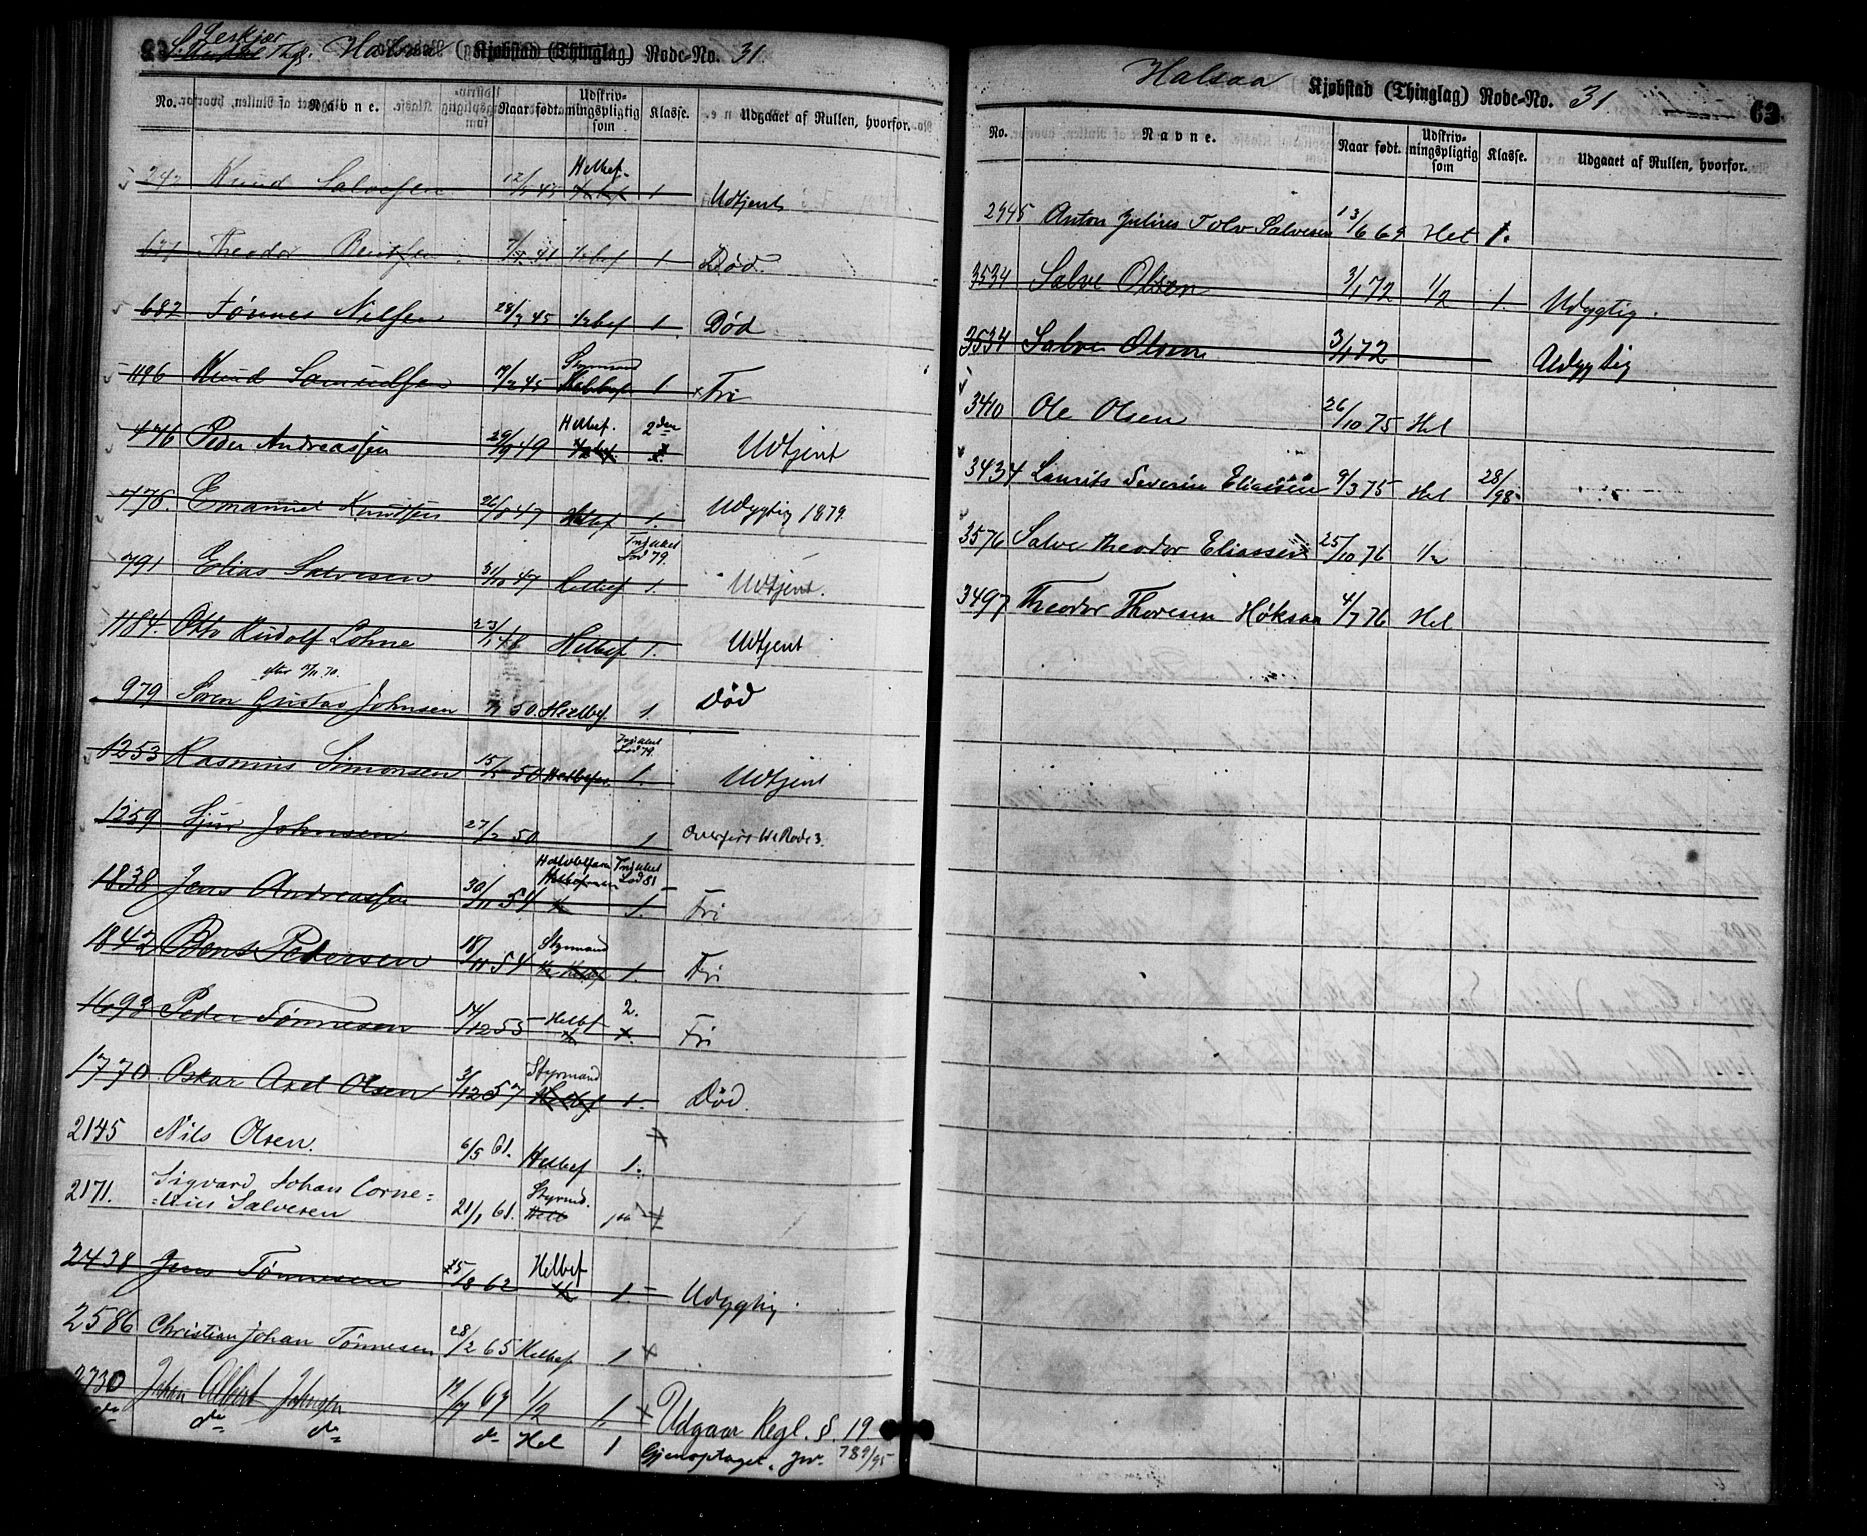 Halsaa (Kjøbstad (Thinglag) Rode-No. 31.
No. Navne. Naar født. Udskriv-ningspligtig som Klasse. Udgaaet af Rullen, hvorfor.
Helbef.
242 Knud Salvesen 12/ 43 1 Udtjent
631 Theodor Bentsen 41 1/2bef 1 Død.
682 Tønnes Nilsen 28/3 45 1/2bef 1. Død
Styrmand
1196 Knud Samuelsen 7/2 45 Helbef 1 Fri
Helbef. 2den
476 Peder Andreassen 29/9 49 1/2bef Udtjent
778. Emanuel Knudsen 26/ 47 Helbef 1. Udygtig 1879.
Lod 79.
791 Elias Salvesen 31/10 47 Helbef 1. Udtjent.
1184. Otto Rudolf Lohne 23/1 48 Helbef 1. Udtjent
efter
979 Søren Gustav Johnsen 50. Heelbef. 1. Død
Lod 79.
1253 Rasmus Simonsen 15/ 50 1. Udtjent
1259 Sjur Johnsen 27/2 50 1 Overført til Rode 3.
Lod 81
1838 Jens Andreassen 30/11 54 1. Fri
Styrmand
1842 Bent Pedersen 18/11 54 1/2 Helbef 1. Fri
2.
1693 Peder Tønnesen 14/12 55 Helbef Fri
Styrmand
1770 Oskar Axel Olsen 3/12 57 Helbef 1. Død.
2145 Nils Olsen. 6/5 61. Helbef 1.
Sigvard Johan Corne= Styrmd.
2171. =lius Salvesen 21/1 61. Helb
Helbef
2438 Jens Tønnesen 25/8 62 1. Udygtig.
2586 Christian Johan Tønnesen 28/2 65 Helbef 1
2730 Johan Albert Johnsen 12/7 67 1/2 1. Udgaar Regl. § 19.
do do do Hel 1 Gjenoptaget. Jr. 789/95
Halsaa Kjøbstad (Thinglag) Rode-No. 31 63.
No. Navne. Naar født. Udskriv-ningspligtig som Klasse. Udgaaet af Rullen, hvorfor.
2945 Anton Julius Tolv Salvesen 13/6 69 Hel 1.
3534 Salve Olsen 3/1 72 1/2 1. Udygtig.
3534 Salve Olsen 3/1 72 Udygtig
3410 Ole Olsen 26/10 75 Hel
3434 Laurits Severin Eliassen 9/3 75 Hel 28/98
3576 Salve Theodor Eliassen 25/10 76 1/2
3497 Theodor Thoresen Høksaa 4/7 76 Hel